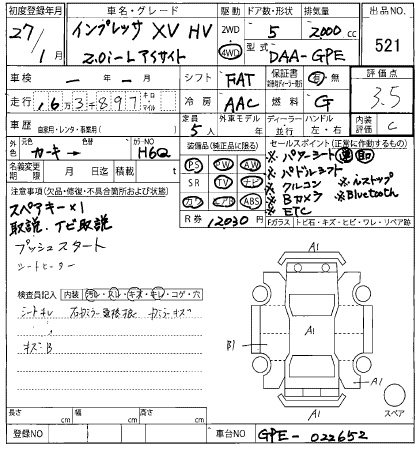 初度登録年月 車名・グレード 駆動 ドア数・形状 排気量 出品NO.
27/1月 インプレッサ XV HV 2WD 4WD 5 2000cc 521
2.0i-L アイサイト 型式 DAA-GPE
車検 ー年ー月 シフト FAT 保証書 有・無 評価点
3.5
走行 1,6万3,897 キロ マイル 冷房 AAC 燃料 G
車歴 自家用・レンタ・事業用( ) 定員 5人 外車モデル ディーラー・並行 ハンドル 左・右 内装評価 C
外色 元色 カーキー 色替 カラーNO H6Q
名義変更期限 月 日迄 積載 t
装備品(純正品に限る)
PS PW AW
SR TV ナビ
カワ エアB ABS
R券 12030円
セールスポイント(正常に動作するもの)
※パワーシート 運 助
※パドルシフト
※クルコン ※iストップ
※Bカメラ ※Bluetooth
※ETC
Fガラス トビ石・キズ・ヒビ・ワレ・リペア跡
注意事項(欠品・修復・不具合箇所および状態)
スペアキー×1
取説、ナビ取説
プッシュスタート
シートヒーター
検査員記入 内装 汚レ・スレ・キズ・キレ・コゲ・穴
シートキレ
キズB
A1
A1
B1
A1
A1
スペア
長さ cm 幅 cm 高さ cm
登録NO 車台NO GPE-022652